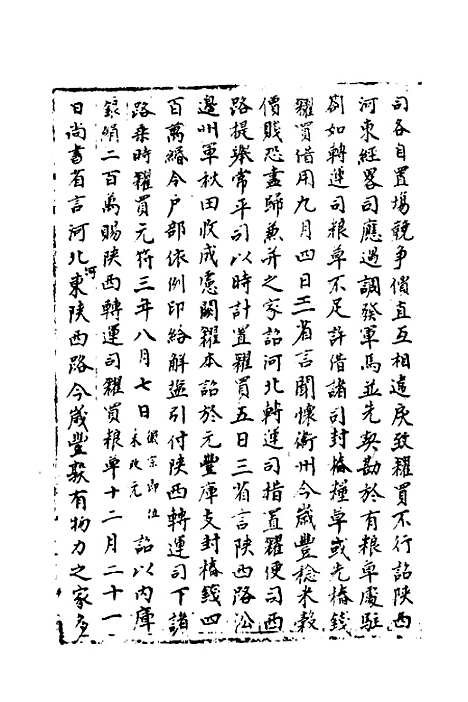 司各自置場競争價直互相違戾致糴買不行詔陝西
河東經畧司應遇調發軍馬並先契勘於有粮草處駐
劄如轉運司粮草不足許借諸司封樁糧草或先樁錢
糴買借用九月四日三省言聞懷衛州今歲豐稔米穀
價賤恐盡歸兼并之家詔河北轉運司措置糴便司西
路提舉常平司以時計置糴買五日三省言陝西路沿
邊州軍秋田收成慮闕糴本詔於元豐庫支封樁錢四
百萬緡令户部依例印給解塩引付陝西轉運司下諸
路乗時糴買元符三年八月七日徽宗即位未改元詔以內庫
錢絹二百萬賜陝西轉運司糴買粮草十二月二十一
日尚書省言河北河東陝西路今歲豐熟有物力之家多